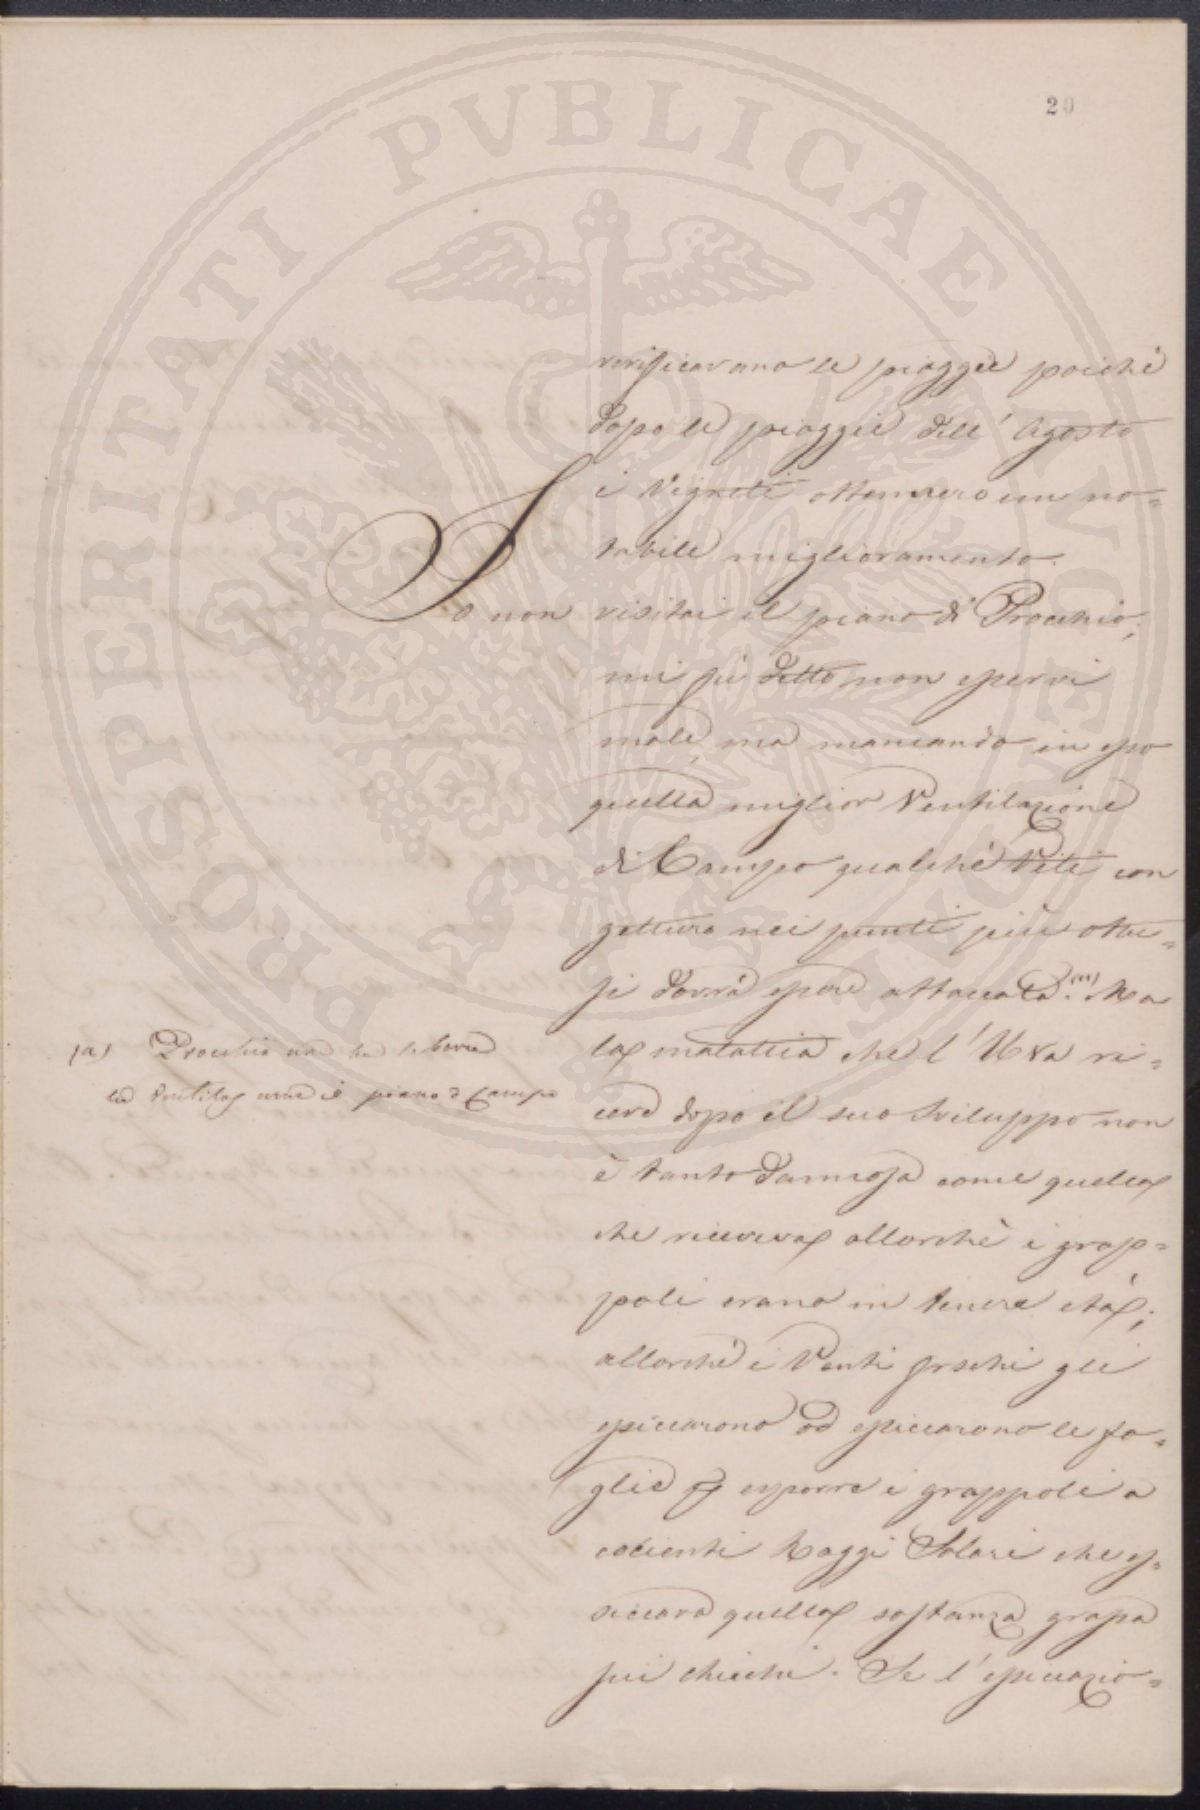 20
PROSPERITATI PVBLICAE AVGENDAE
verificavano le pioggie poichè
dopo le pioggie dell' Agosto
i Vigneti ottennero un no=
tabile miglioramento.
Io non visitai il piano di Procchio;
mi fù detto non esservi
male, ma mancando in esso
quella miglior Ventilazione
di Campo qualche Viti con
gettura nei punti più ottu=
si dovrà essere attaccata.(a) Ma
la malattia che l' Uva ri=
ceve dopo il suo sviluppo non
è tanto dannosa come quella
che riceveva allorchè i grap=
poli erano in tenera età;
allorchè i Venti freschi gli
essiccarono od essiccarono le fo=
glie p esporre i grappoli a
cocienti Raggi Solari che es=
siccava quella sostanza grassa
sui chicchi. Se l' essiccazio=
(a) Procchio non ha
la Ventilaz come il piano d Campo